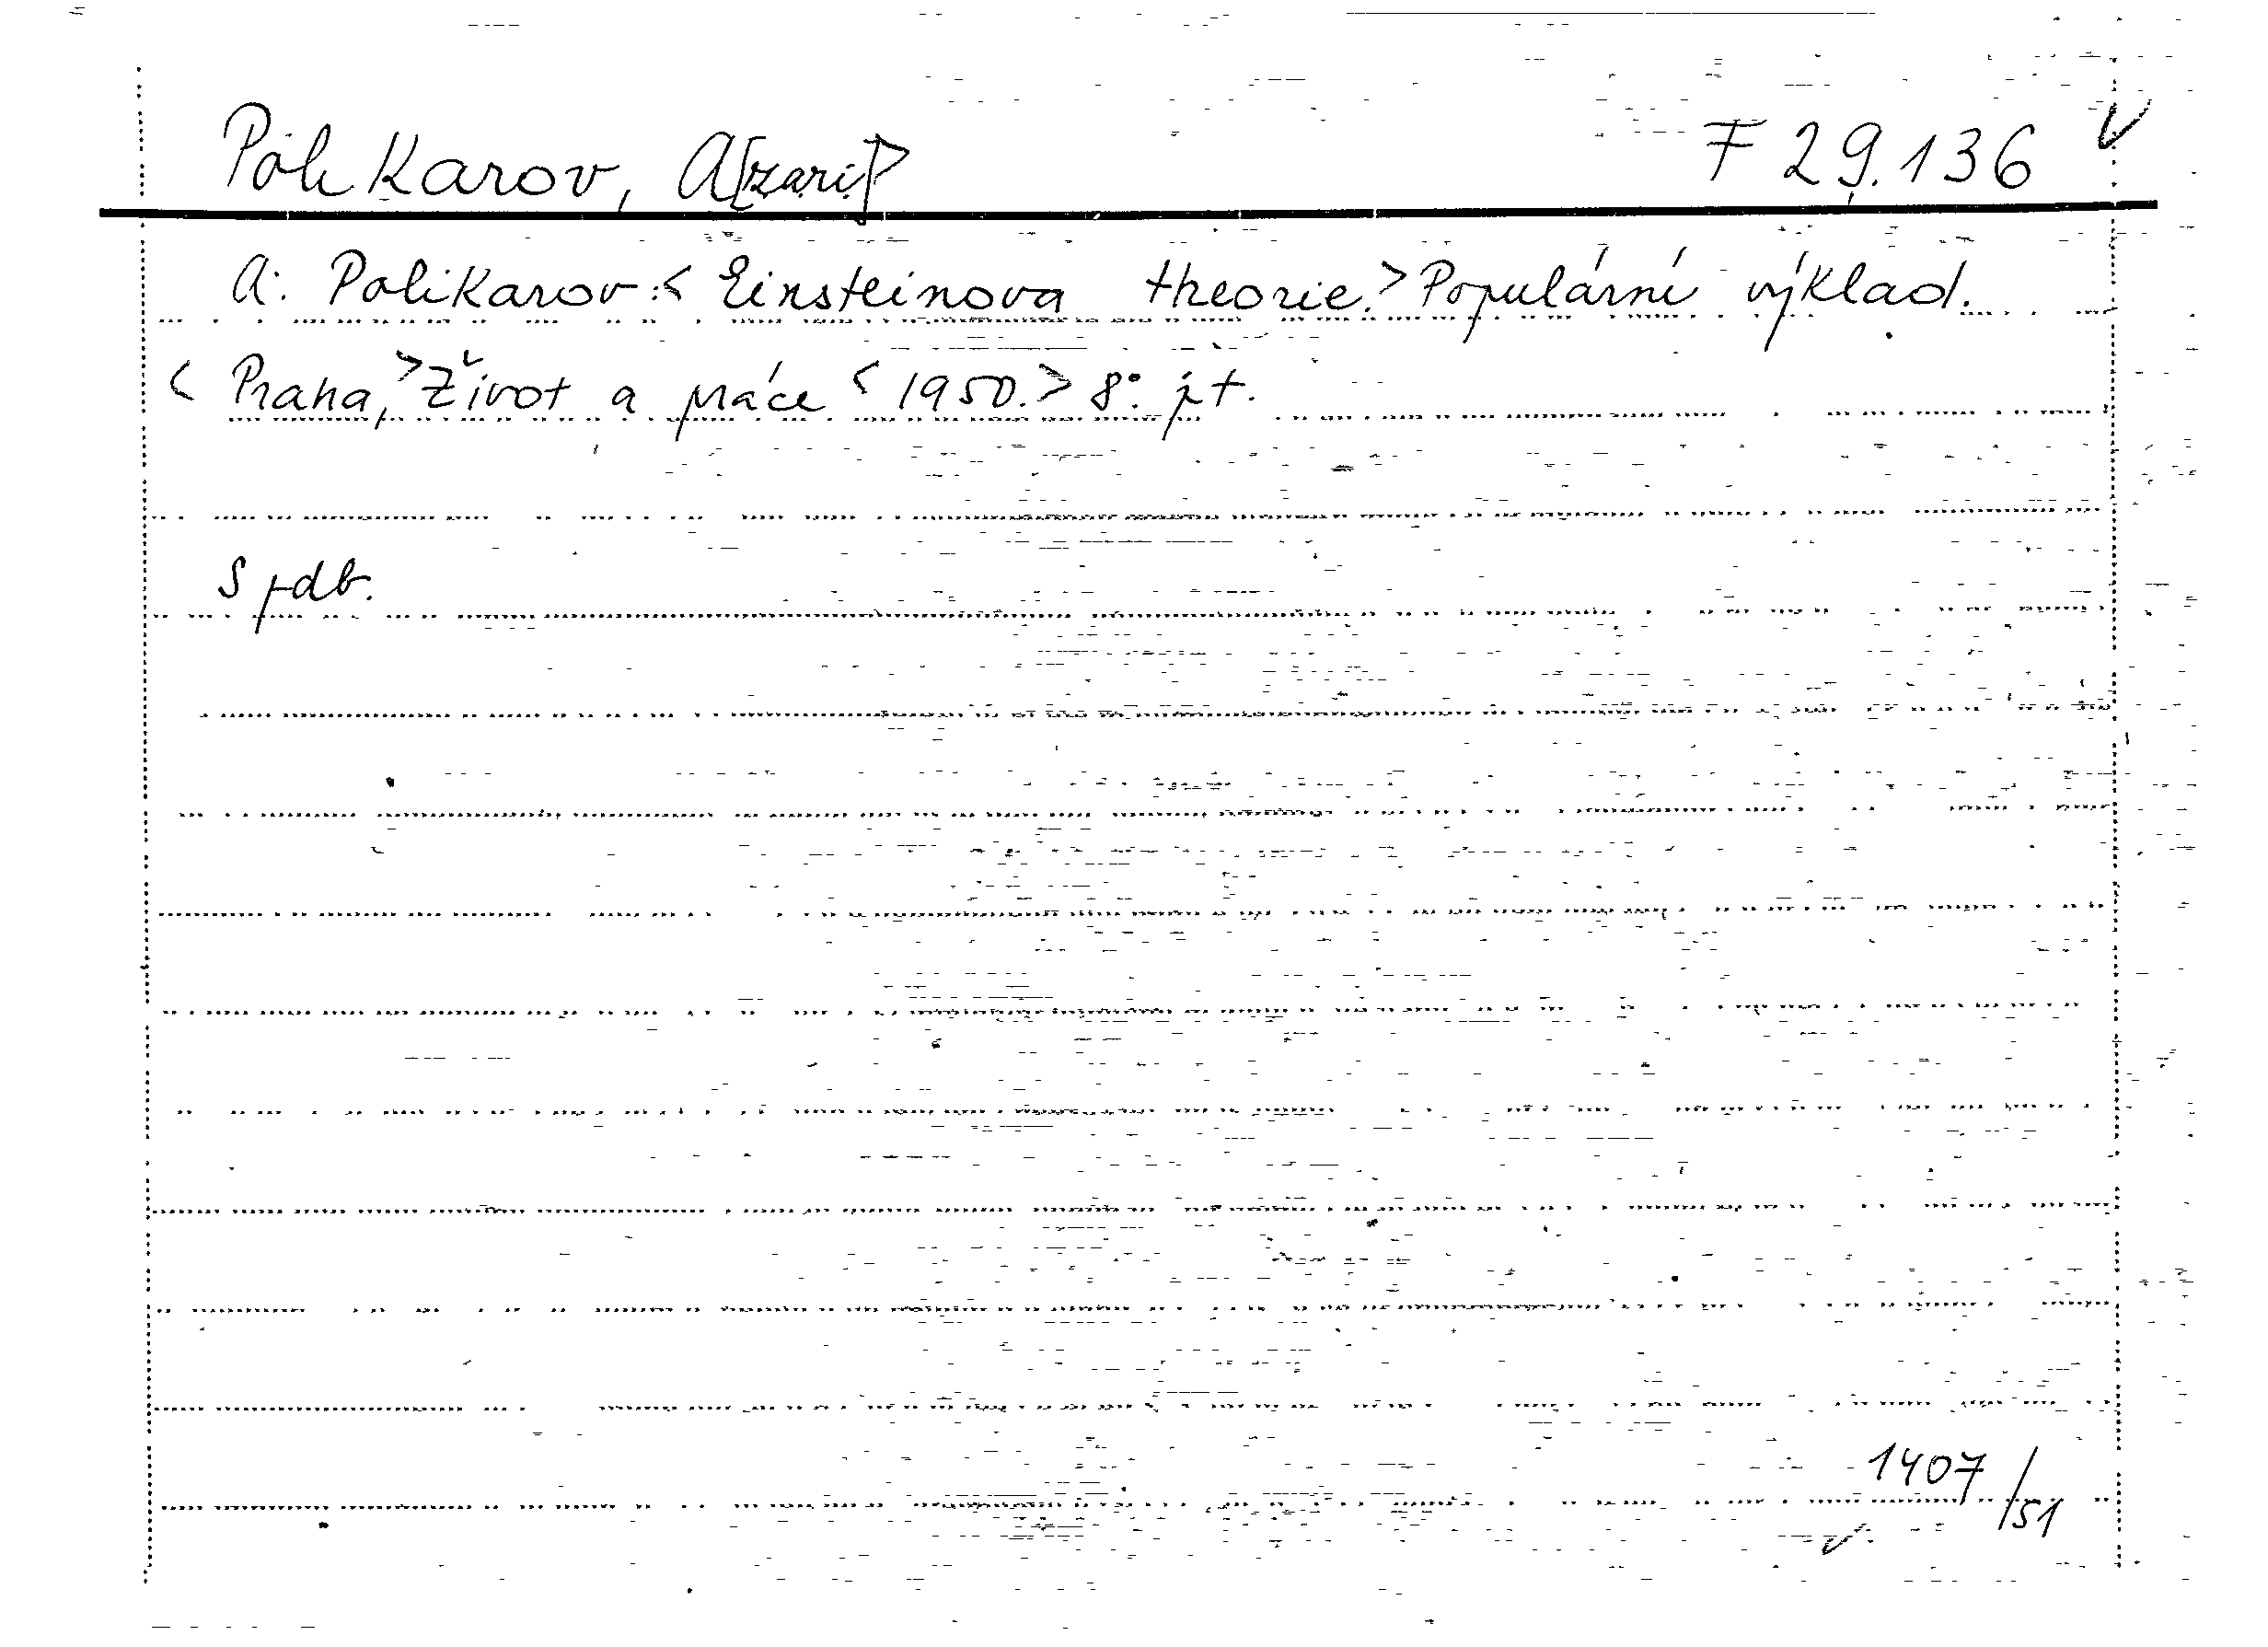 Polikarov, A[zarij] F 29.136
A. Polikarov: < Einsteinova theorie. > Populární výklad.
< Praha, > Život a práce < 1950. > 8°. př.
S pdb.
1407/51